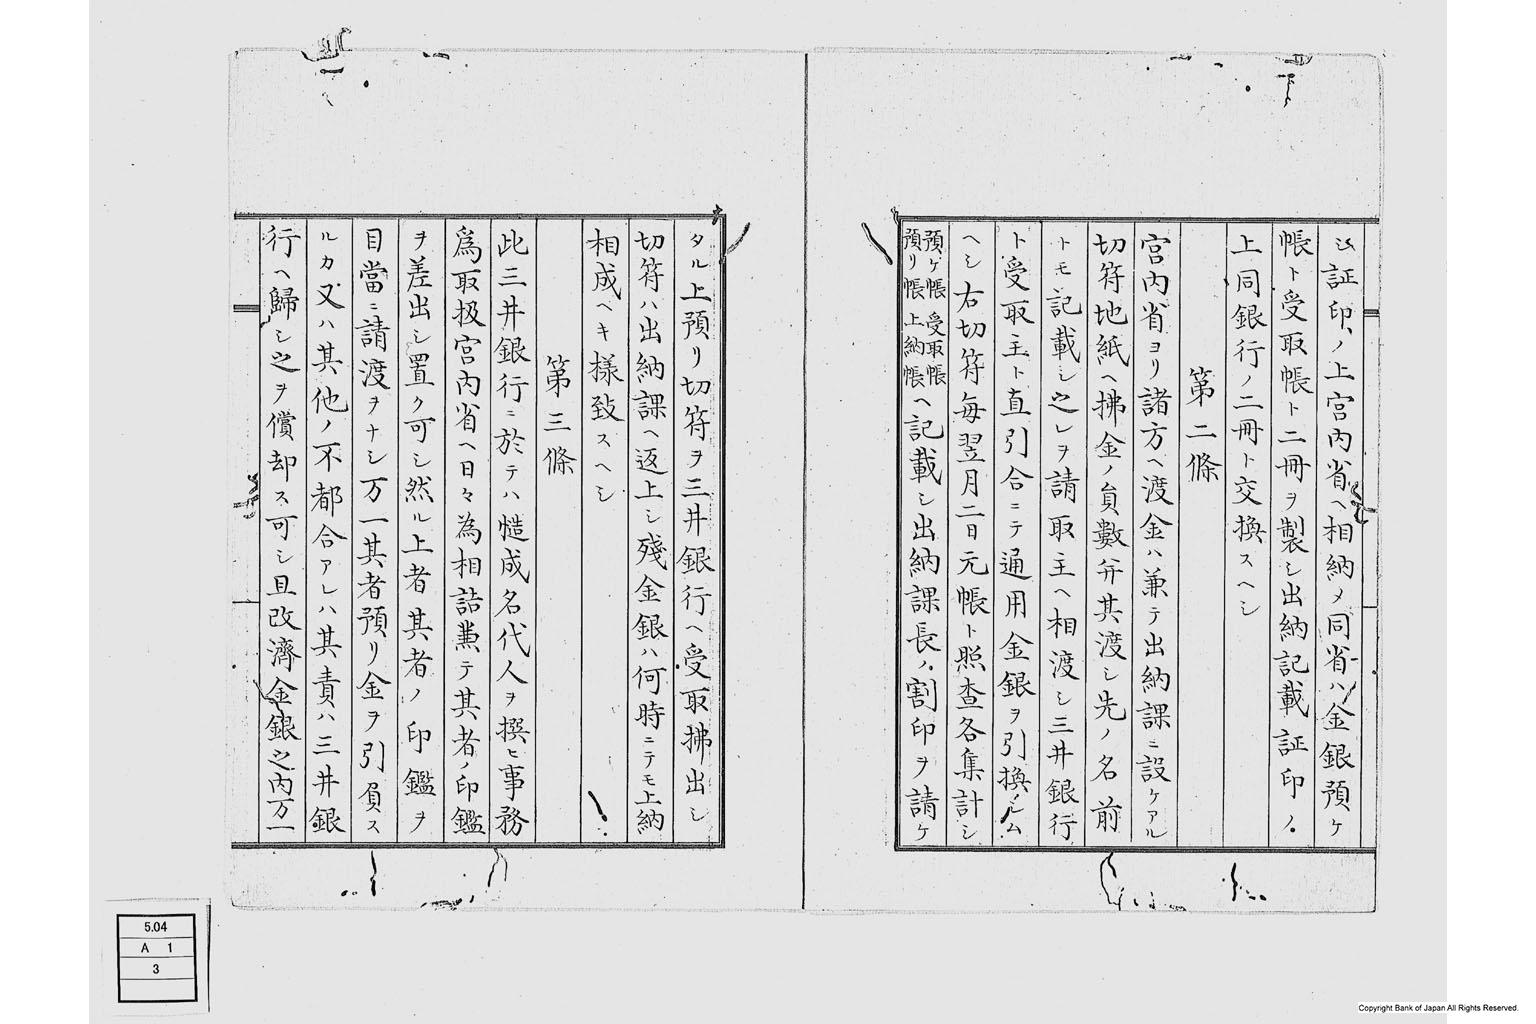 証印ノ上宮内省ヘ相納メ同省ハ金銀預ケ
帳ト受取帳ト二冊ヲ製シ出納記載証印ノ
上同銀行ノ二冊ト交換スヘシ
第二條
宮内省ヨリ諸方ヘ渡金ハ兼テ出納課ニ設ケアル
切符地紙ヘ拂金ノ員數并其渡シ先ノ名前
トモ記載シ之レヲ請取主ヘ相渡シ三井銀行
ト受取主ト直引合ニテ通用金銀ヲ引換シム
ヘシ右切符每翌月二日元帳ト照査各集計シ
預ケ帳 受取帳
預リ帳 上納帳
ヘ記載シ出納課長ノ割印ヲ請ケ
タル上預リ切符ヲ三井銀行ヘ受取拂出シ
切符ハ出納課ヘ返上シ殘金銀ハ何時ニテモ上納
相成ヘキ樣致スヘシ
第三條
此三井銀行ニ於テハ慥成名代人ヲ撰ヒ事務
爲取扱宮内省ヘ日々為相詰兼テ其者ノ印鑑
ヲ差出シ置ク可シ然ル上者其者ノ印鑑ヲ
目當ニ請渡ヲナシ万一其者預リ金ヲ引負ス
ルカ又ハ其他ノ不都合アレハ其責ハ三井銀
行ヘ歸シ之ヲ償却ス可シ且改濟金銀之内万一
5.04
A 1
3
Copyright Bank of Japan All Rights Reserved.